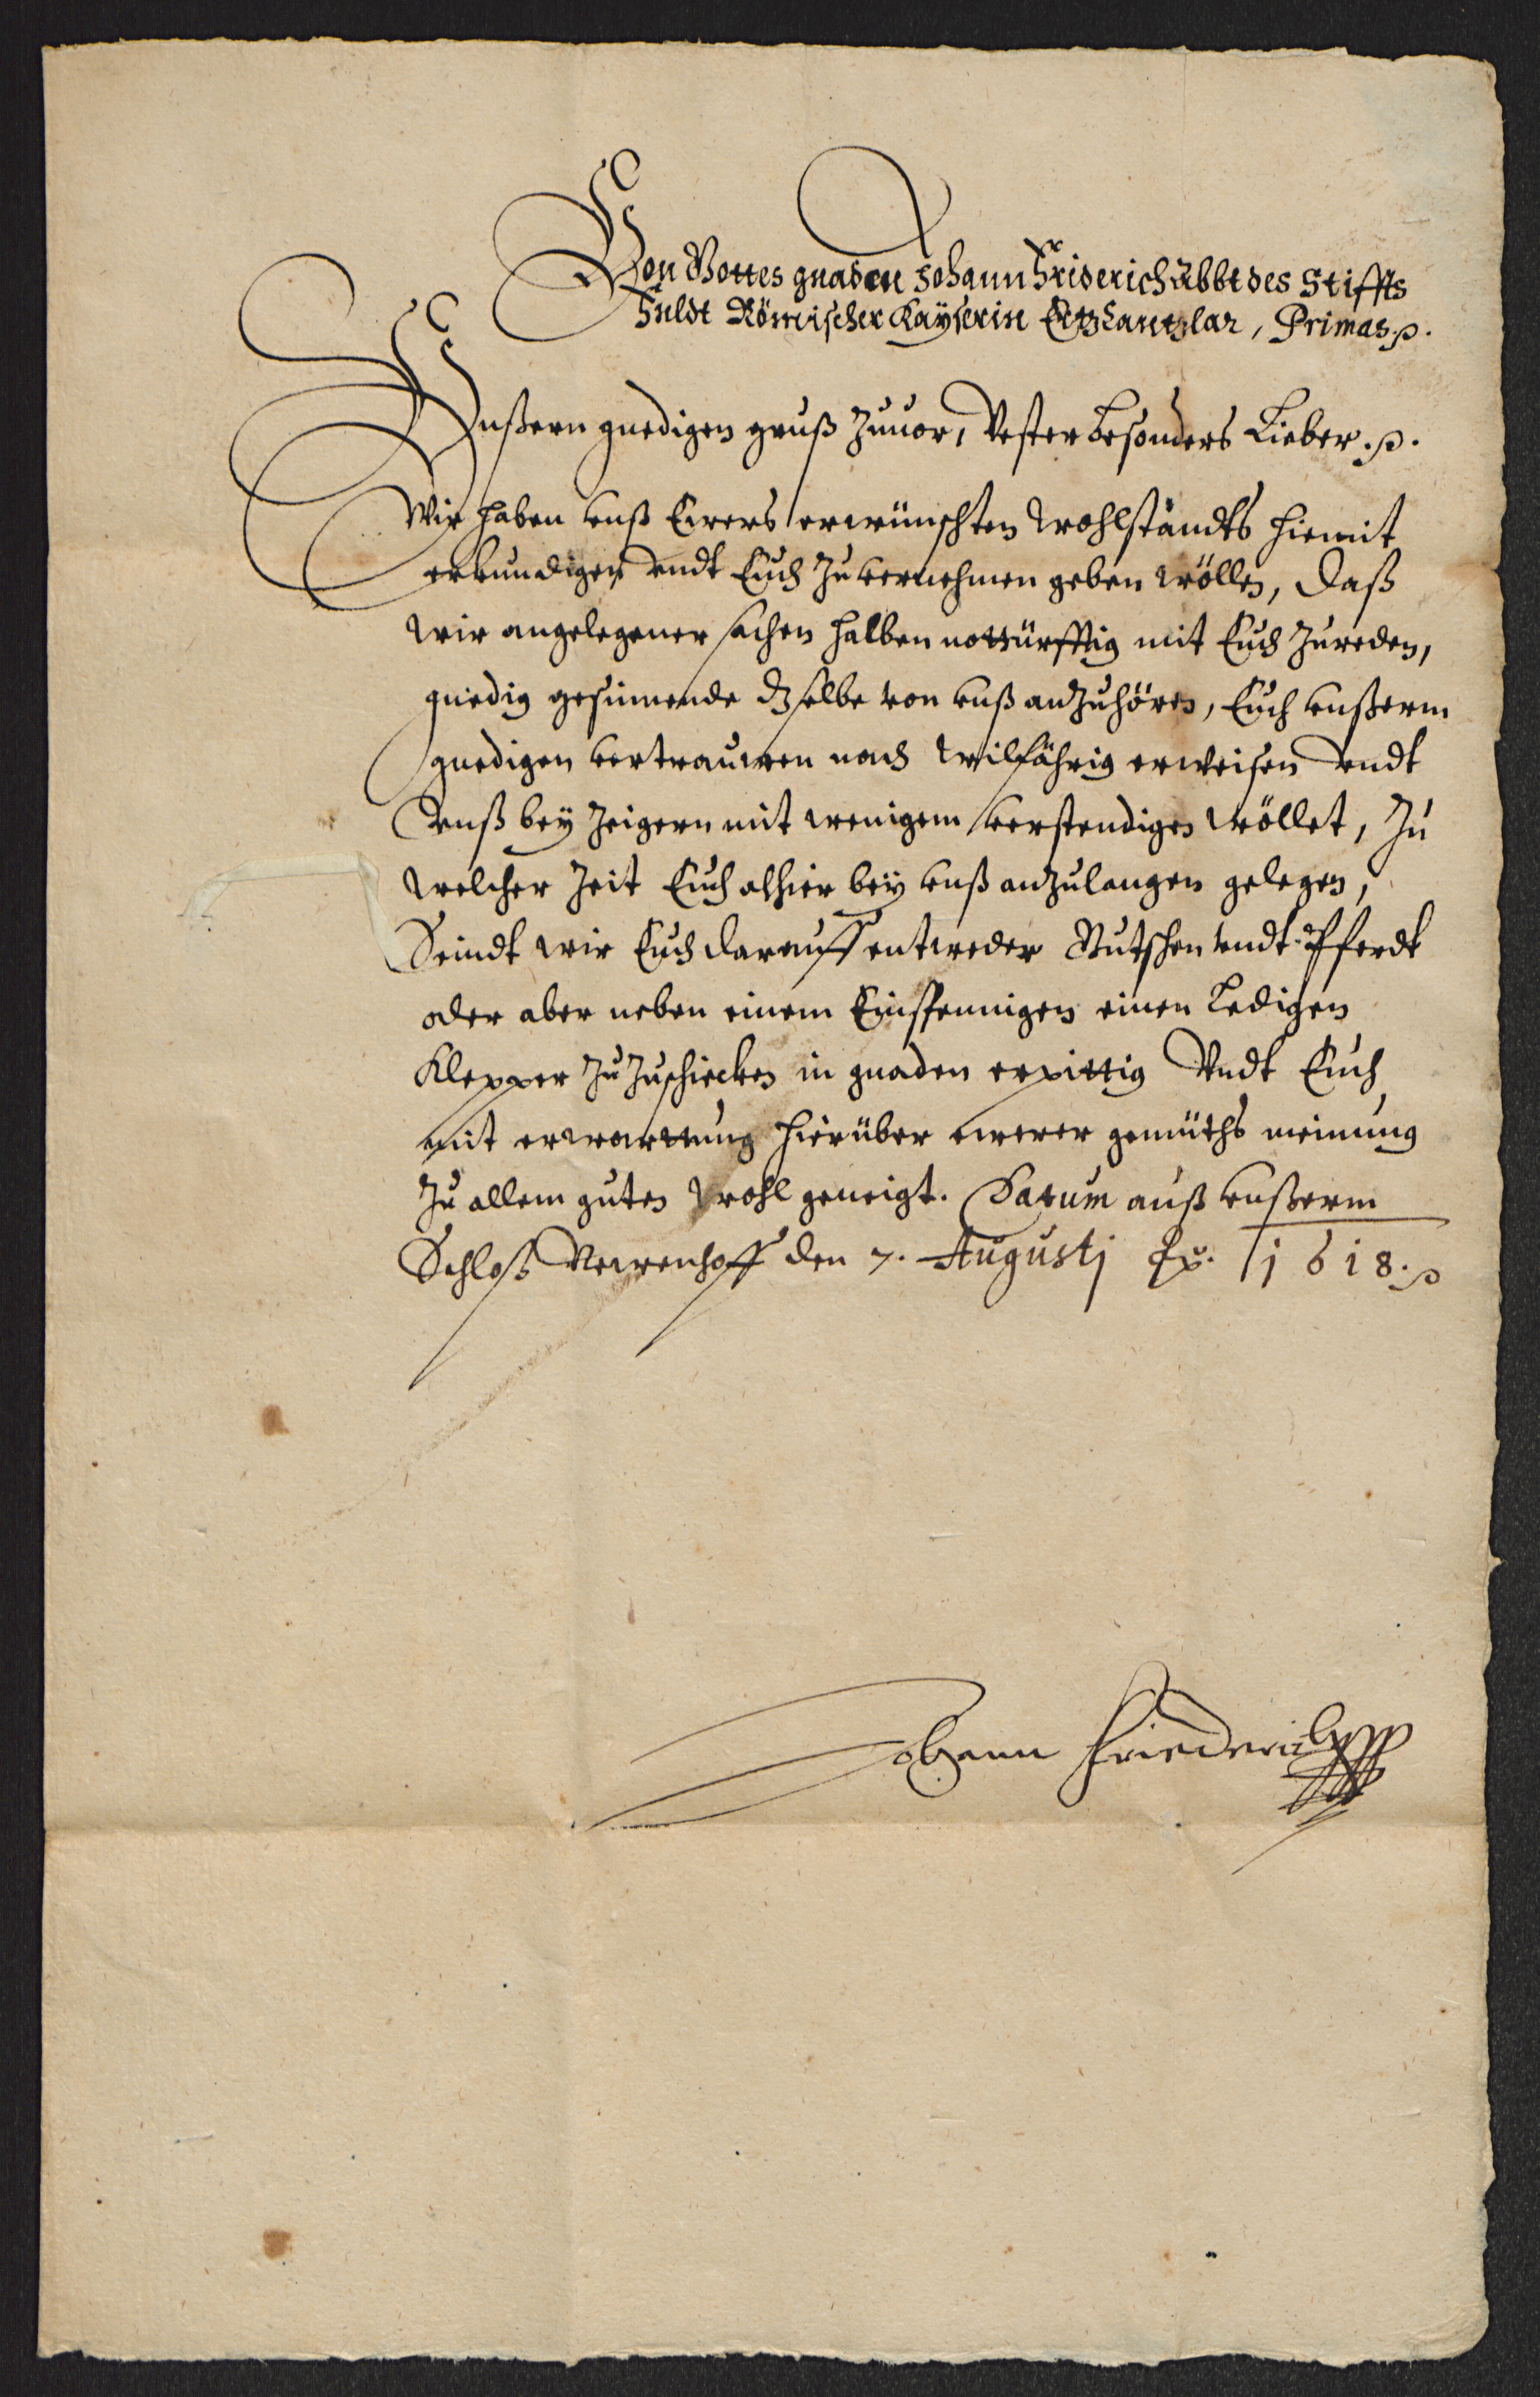 Von Gottes gnaden Johann Friderich Abbt des Stiffts
Fuldt Römischer Kayserin Ertzcantzlar, Primas. p.
Vnßern gnedigen gruß zuuor, Vester besonders Lieber. p.
Wir haben vnß Ewers erwünschten wohlständts hiemit
erkundigen vndt Euch zuvernehmen geben wöllen, daß
wir angelegener sachen halben nottürfftig mit Euch zureden,
gnedig gesinnende dselbe von vnß anzuhören, Euch vnßerm
gnedigen vertrauwen nach wilfährig erweisen vndt
vnß bey Zeigern mit wenigem verstendigen wöllet, zu
welcher Zeit Euch alhier bey vnß anzulangen gelegen,
Seindt wir Euch darauff entweder Kutschen vndt Pferdt
oder aber neben einem Einspennigen einen Ledigen
Klepper zuzuschicken in gnaden erpittig Vndt Euch
mit erwarttung hierüber ewerer gemüths meinung
zu allem guten wohl geneigt. Datum auß vnßerm
Schloß Newenhoff den 7. Augustj 1618. p
Johann Friederich